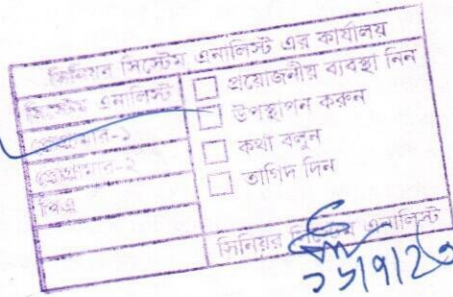 সিনিয়র সিস্টেম এনালিস্ট এর কার্যালয়
সিস্টেম এনালিস্ট
প্রোগ্রামার-১
প্রোগ্রামার-২
পিএ
প্রয়োজনীয় ব্যবস্থা নিন
উপস্থাপন করুন
কথা বলুন
তাগিদ দিন
সিনিয়র সিস্টেম এনালিস্ট